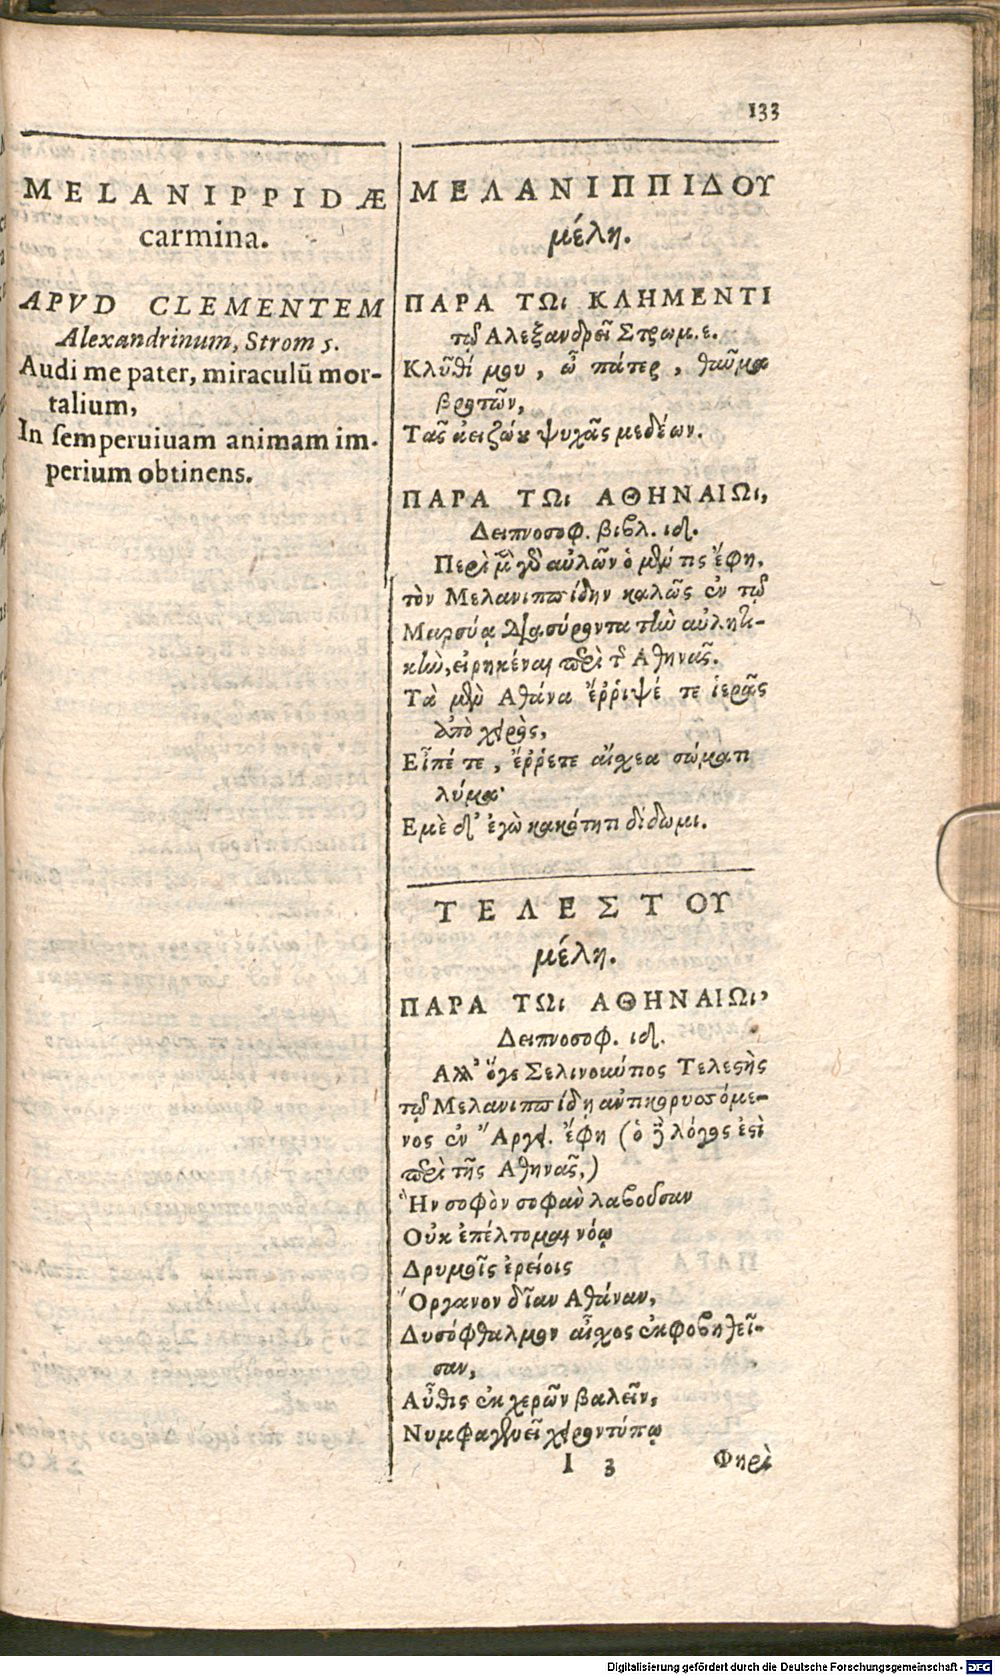 133
MELANIPPIDÆ
carmina.
APVD CLEMENTEM
Alexandrinum, Strom 5.
Audi me pater, miraculū mor-
talium,
In semperuiuam animam im-
perium obtinens.
ΜΕΛΑΝΙΠΠΙΔΟΥ
μέλη.
ΠΑΡΑ ΤΩι ΚΛΗΜΕΝΤΙ
τῷ Αλεξανδρεῖ Στρωμ. ε.
Κλῦθί μου, ὦ πάτερ, θαῦμα
βροτῶν,
Τᾶς ἀειζώου ψυχᾶς μεδέων.
ΠΑΡΑ ΤΩι ΑΘΗΝΑΙΩι,
Δειπνοσοφ. βιβλ. ιδ.
Περὶ μὲν γὰρ αὐλῶν ὁ μέν τις ἔφη,
τὸν Μελανιππίδην καλῶς ἐν τῷ
Μαρσύᾳ διασύροντα τὴν αὐλητι-
κὴν, εἰρηκέναι περὶ τῆς Αθηνᾶς.
Τὰ μὲν Αθάνα ἔῤῥιψέ τε ἱερᾶς
ἀπὸ χειρὸς,
Εἶπέ τε, ἔῤῥετε αἴσχεα σώματι
λύμα·
Εμὲ δ' ἐγὼ κακότητι δίδωμι.
ΤΕΛΕΣΤΟΥ
μέλη.
ΠΑΡΑ ΤΩι ΑΘΗΝΑΙΩι,
Δειπνοσοφ. ιδ.
Αλλ' ὅγε Σελινούντιος Τελεστὴς
τῷ Μελανιππίδῃ ἀντικορυσσόμε-
νος ἐν Ἀργοῖ. ἔφη (ὁ δὲ λόγος ἐστὶ
περὶ τῆς Αθηνᾶς,)
Ἣν σοφὸν σοφὰν λαβοῦσαν
Οὐκ ἐπέλτομαι νόῳ
Δρυμοῖς ὀρείοις
Ὄργανον δῖαν Αθάναν,
Δυσόφθαλμον αἶσχος ἐκφοβηθεῖ-
σαν,
Αὖθις ἐκ χερῶν βαλεῖν,
Νυμφαγενεῖ χειροντύπῳ
I 3
Φηρὶ
Digitalisierung gefördert durch die Deutsche Forschungsgemeinschaft - DFG